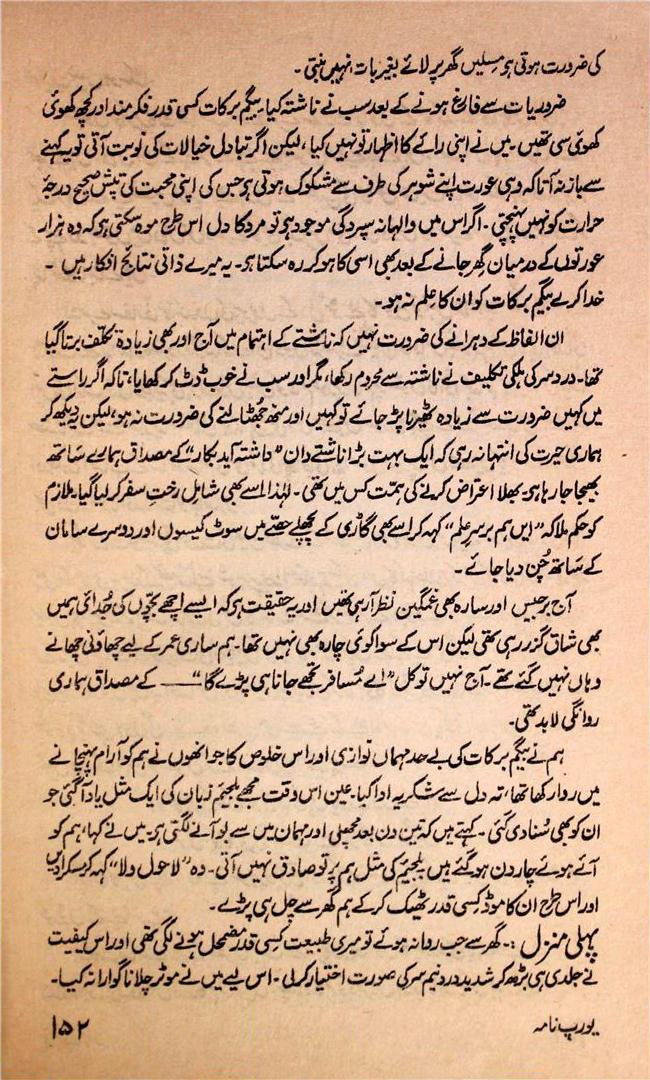 کی ضرورت ہوتی ہو مِسلیں گھر پر لائے بغیر بات نہیں بنتی ۔
ضروریات سے فارغ ہونے کے بعد سب نے ناشتہ کیا۔ بیگم برکات کسی قدر فکرمند اور کچھ کھوئی
کھوئی سی تھیں ۔ میں نے اپنی رائے کا اظہار تو نہیں کیا ، لیکن اگر تبادل خیالات کی نوبت آتی تو یہ کہنے
سے باز نہ آتا کہ وہی عورت اپنے شوہر کی طرف سے مشکوک ہوتی ہو جس کی اپنی محبت کی تپش صحیح درجۂ
حرارت کو نہیں پہنچتی ۔ اگر اس میں والہانہ سپردگی موجود ہو تو مرد کا دل اس طرح موہ سکتی ہو کہ وہ ہزار
عورتوں کے درمیان گھر جانے کے بعد بھی اسی کا ہو کر رہ سکتا ہو۔ یہ میرے ذاتی نتائج افکار ہیں ۔
خدا کرے بیگم برکات کو ان کا علم نہ ہو۔
ان الفاظ کے دہرانے کی ضرورت نہیں کہ ناشتے کے اہتمام میں آج اور بھی زیادہ تکلف برتا گیا
تھا۔ دردِ سر کی ہلکی تکلیف نے ناشتہ سے محروم رکھا، مگر اور سب نے خوب ڈٹ کر کھایا، تاکہ اگر راستے
میں کہیں ضرورت سے زیادہ ٹھیرنا پڑ جائے تو کہیں اور منھ جھٹالنے کی ضرورت نہ ہو، لیکن یہ دیکھ کر
ہماری حیرت کی انتہا نہ رہی کہ ایک بہت بڑا ناشتے دان ”داشتہ آید بکار“ کے مصداق ہمارے ساتھ
بھیجا جا رہا ہو۔ بھلا اعتراض کرنے کی ہمت کس میں تھی ۔ لہٰذا اسے بھی شامل رختِ سفر کر لیا گیا۔ ملازم
کو حکم ملا کہ ”ایں ہم بر سرِ علم“ کہہ کر اسے بھی گاڑی کے پچھلے حصّے میں سوٹ کیسوں اور دوسرے سامان
کے ساتھ چُن دیا جائے ۔
آج برجیس اور سارہ بھی غمگین نظر آ رہی تھیں اور یہ حقیقت ہو کہ ایسے اچھے بچّوں کی جُدائی ہمیں
بھی شاق گزر رہی تھی لیکن اس کے سوا کوئی چارہ بھی نہیں تھا۔ ہم ساری عمر کے لیے چھاؤنی چھانے
وہاں نہیں گئے تھے ۔ آج نہیں تو کل ”اے مُسافر تجھے جانا ہی پڑے گا“ —— کے مصداق ہماری
روانگی لابد تھی۔
ہم نے بیگم برکات کی بے حد مہماں نوازی اور اس خلوص کا جو انھوں نے ہم کو آرام پہنچانے
میں روا رکھا تھا، تہ دل سے شکریہ ادا کیا۔ عین اس وقت مجھے بلجیم زبان کی ایک مثل یاد آ گئی جو
ان کو بھی سُنا دی گئی ۔ کہتے ہیں کہ تین دن بعد مچھلی اور مہمان میں سے بو آنے لگتی ہو۔ میں نے کہا، ہم کو
آئے ہوئے چار دن ہو گئے ہیں بلجیم کی مثل ہم پر تو صادق نہیں آتی ۔ وہ ”لاحول ولا“ کہہ کر مسکرا دیں
اور اس طرح ان کا موڈ کسی قدر ٹھیک کر کے ہم گھر سے چل ہی پڑے ۔
پہلی منزل :۔ گھر سے جب روانہ ہوئے تو میری طبیعت کسی قدر مضمحل ہونے لگی تھی اور اس کیفیت
نے جلدی ہی بڑھ کر شدید دردِ نیم سر کی صورت اختیار کر لی ۔ اس لیے میں نے موٹر چلانا گوارا نہ کیا۔
یورپ نامہ
۱۵۲